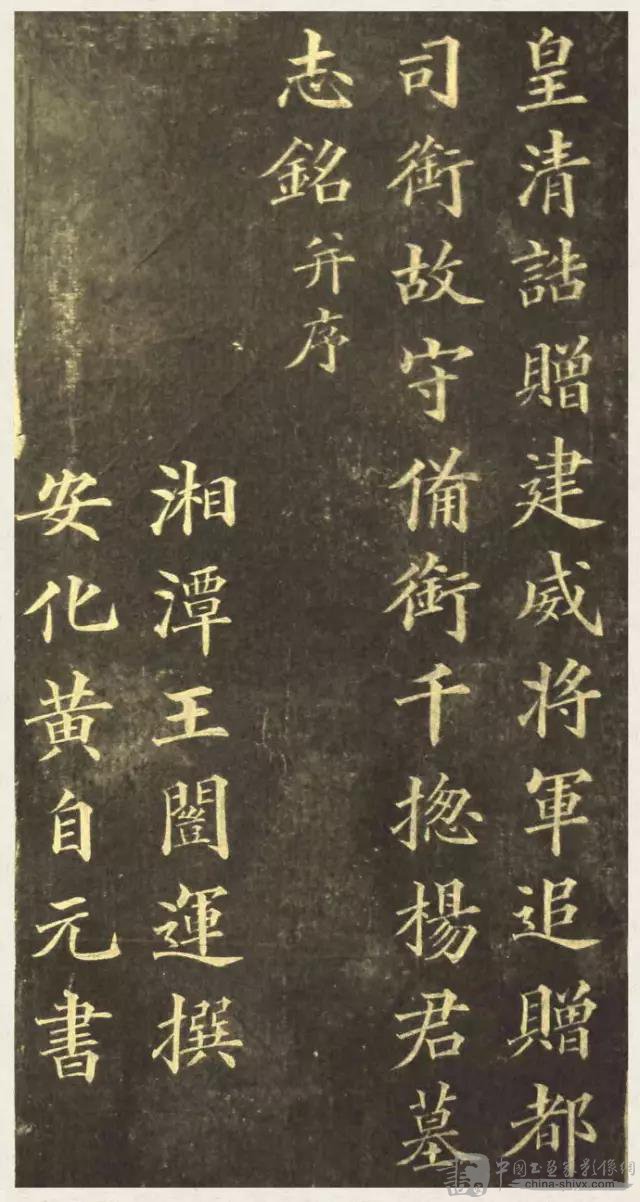 皇清誥贈建威将軍追贈都
司銜故守備銜千揔楊君墓
志銘并序
湘潭王闓運撰
安化黄自元書
china-shivx.com